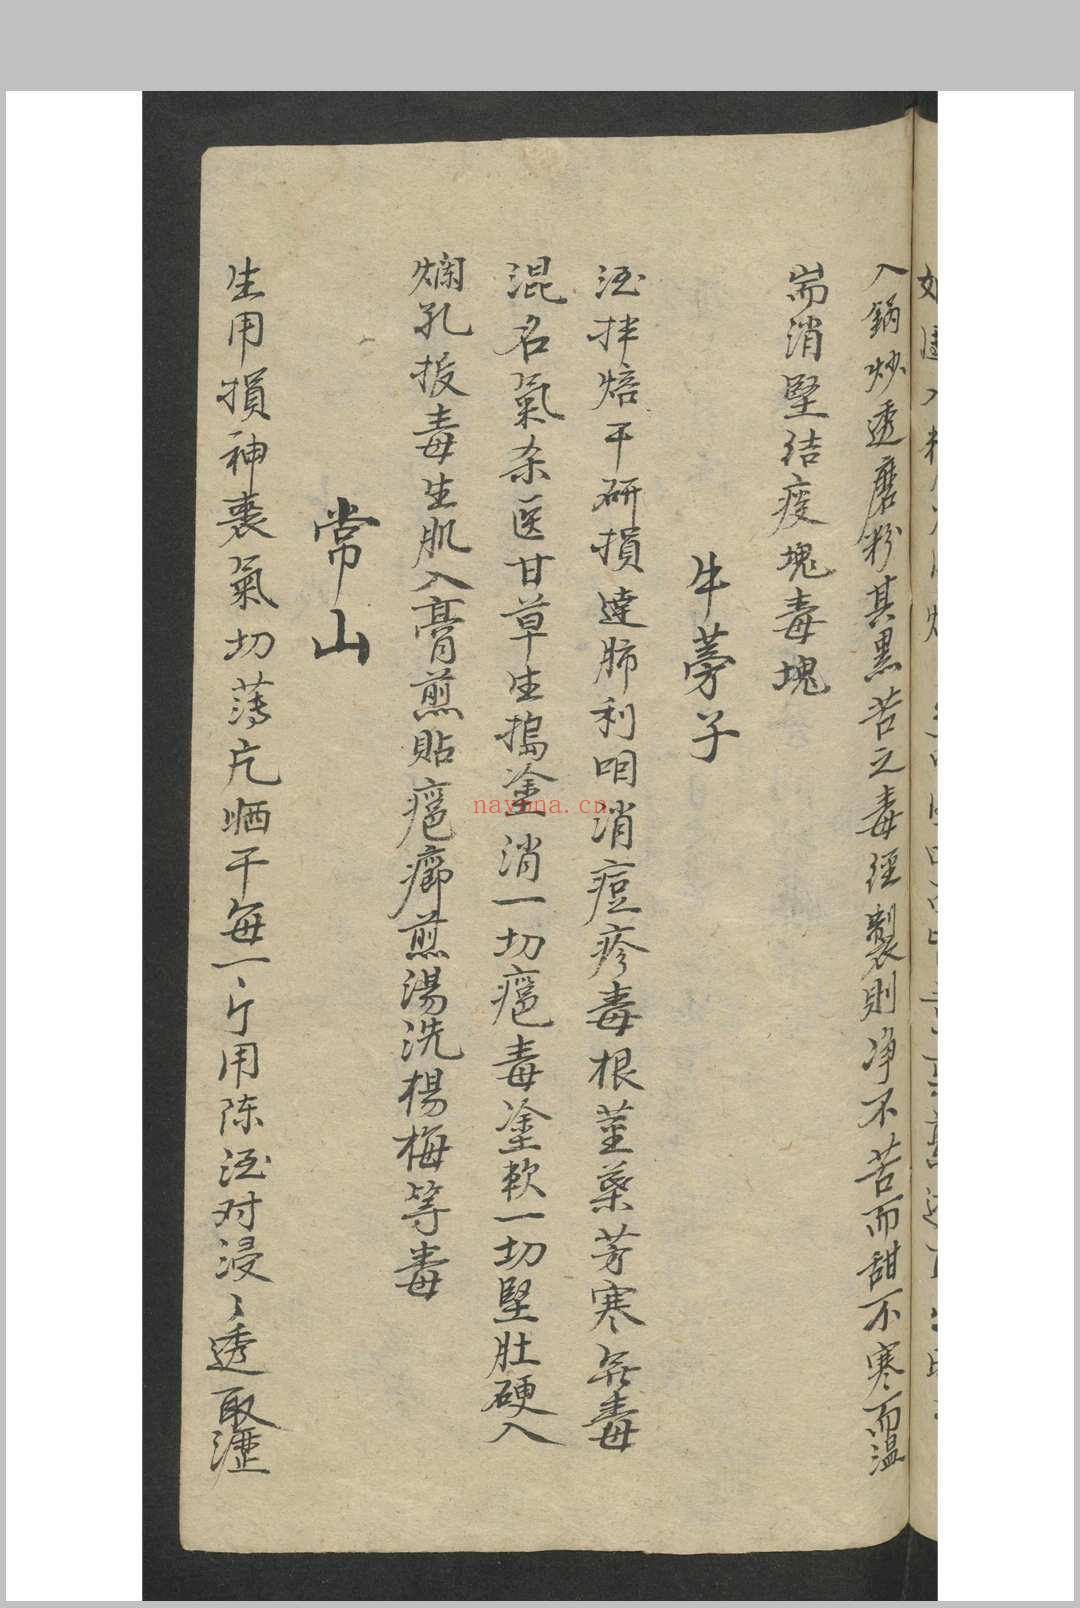 入鍋炒透磨粉其黑苦之毒經製則净不苦而甜不寒而温
耑消堅結痰塊毒塊
牛蒡子
酒拌焙干研損達肺利咽消痘疹毒根莖葉芳寒無毒
混名氣杀医甘草生搗塗消一切瘡毒塗軟一切堅肚硬入
爛孔拔毒生肌入膏煎貼瘡癤煎湯洗楊梅等毒
常山
生用損神喪氣切薄片晒干每一斤用陈酒对浸浸透取瀝
nayona.cn